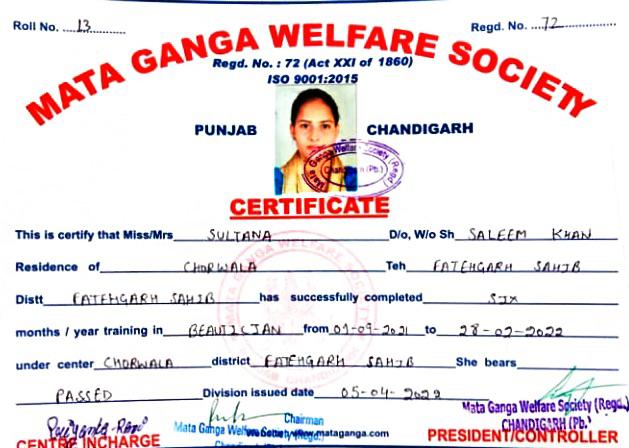 Roll No. 13 Regd. No. 72
MATA GANGA WELFARE SOCIETY
Regd. No. : 72 (Act XXI of 1860)
ISO 9001:2015
PUNJAB CHANDIGARH
Mata Ganga Welfare Society (Regd.)
CERTIFICATE
This is certify that Miss/Mrs SULTANA D/o, W/o Sh SALEEM KHAN
Residence of CHORWALA Teh FATEHGARH SAHIB
Distt FATEHGARH SAHIB has successfully completed SIX
months / year training in BEAUTICIAN from 01-09-2021 to 28-02-2022
under center CHORWALA district FATEHGARH SAHIB She bears
PASSED Division issued date 05-04-2022
Chairman
Mata Ganga Welfare Society (Regd.)
CHANDIGARH (Pb.)
Mata Ganga Welfare Society (Regd.)
www.mataganga.com
CENTRE INCHARGE PRESIDENT/CONTROLLER